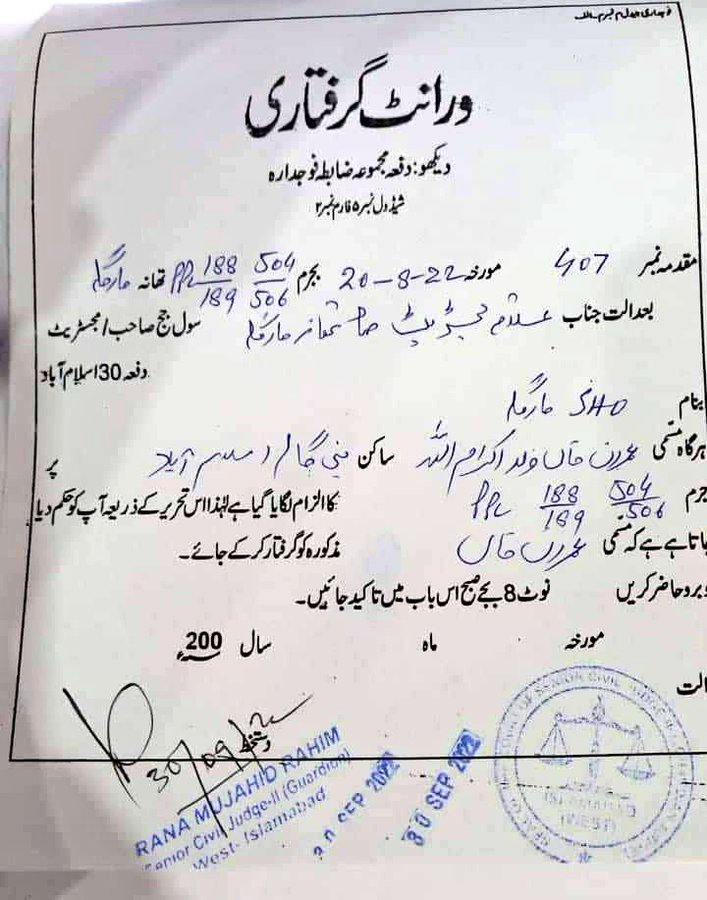 ورانٹ گرفتاری
دیکھو: دفعہ مجموعہ ضابطہ فوجدارہ
شیڈول نمبر ۵ فارم نمبر ۲
مقدمہ نمبر 407 مورخہ 20-8-22 بجرم 504/506 188/189 PPC تھانہ مارگلہ
بعدالت جناب علاقہ مجسٹریٹ صاحب تھانہ مارگلہ سول جج صاحب/مجسٹریٹ
دفعہ 30 اسلام آباد
بنام SHO مارگلہ
ہرگاہ مسمی عمران خان ولد اکرام اللہ ساکن بنی گالہ اسلام آباد پر
جرم 504/506 188/189 PPC کا الزام لگایا گیا ہے لہٰذا اس تحریر کے ذریعہ آپ کو حکم دیا
جاتا ہے ہے کہ مسمی عمران خان مذکورہ کو گرفتار کر کے جائے۔
وبرو حاضر کریں نوٹ 8 بجے صبح اس باب میں تاکید جائیں۔
مورخہ ماہ سال 200ء
الت
دستخط
30/09/22
RANA MUJAHID RAHIM
Senior Civil Judge-II (Guardian)
West-Islamabad
30 SEP 2022
30 SEP 2022
ISLAMABAD
(WEST)